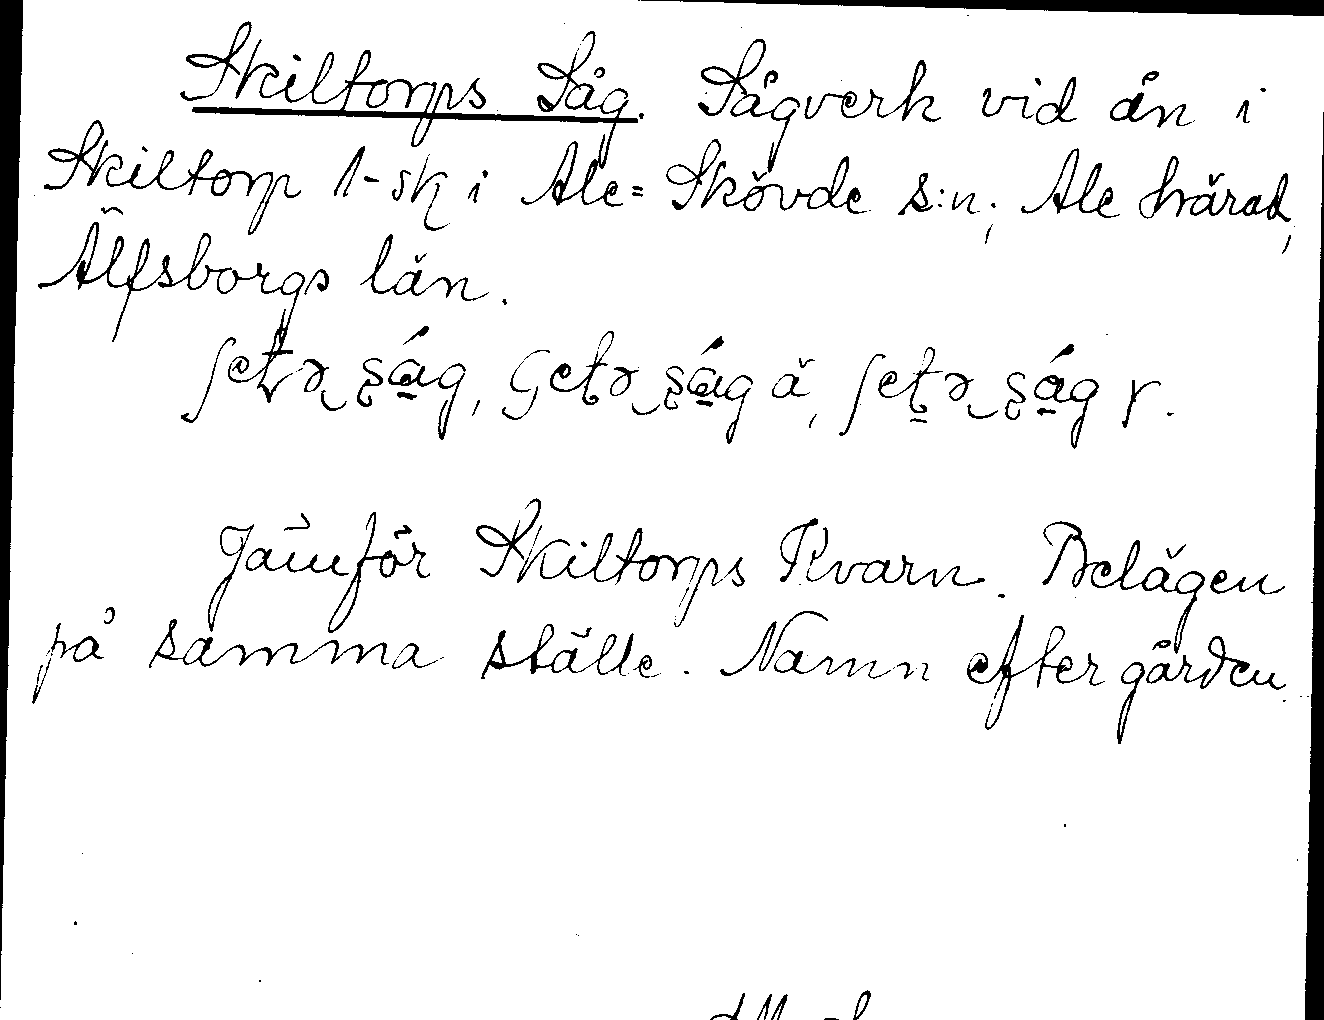 Skiltorps Såg. Sågverk vid ån i
Skiltorp 1-sk i Ale= Skövde s:n, Ale härad,
Älfsborgs län.
Jämför Skiltorps Kvarn. Belägen
på samma ställe. Namn efter gården.